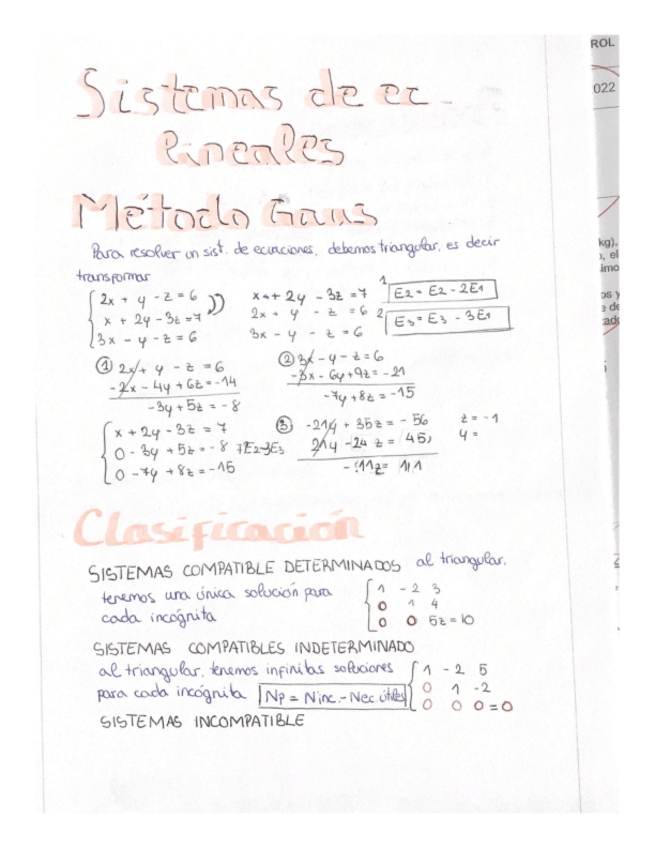 Sistemas de ec.
lineales
Método Gaus
Para resolver un sist. de ecuaciones, debemos triangular, es decir
transformar
2x + y - z = 6
x + 2y - 3z = 7
3x - y - z = 6
x + 2y - 3z = 7
2x + y - z = 6
3x - y - z = 6
1 E2 = E2 - 2E1
2 E3 = E3 - 3E1
① 2x + y - z = 6
-2x - 4y + 6z = -14
-3y + 5z = -8
② 3x - y - z = 6
-3x - 6y + 9z = -21
-7y + 8z = -15
x + 2y - 3z = 7
0 - 3y + 5z = -8 7E2-3E3
0 - 7y + 8z = -15
③ -21y + 35z = -56
21y - 24z = 45
11z = 11
z = -1
y =
Clasificación
SISTEMAS COMPATIBLE DETERMINADOS al triangular,
tenemos una única solución para
cada incógnita
1 -2 3
0 1 4
0 0 5z = 10
SISTEMAS COMPATIBLES INDETERMINADO
al triangular, tenemos infinitas soluciones
para cada incógnita Np = Ninc. - Nec. útiles
1 -2 5
0 1 -2
0 0 0 = 0
SISTEMAS INCOMPATIBLE
ROL
022
kg).
, el
imo
os y
e de